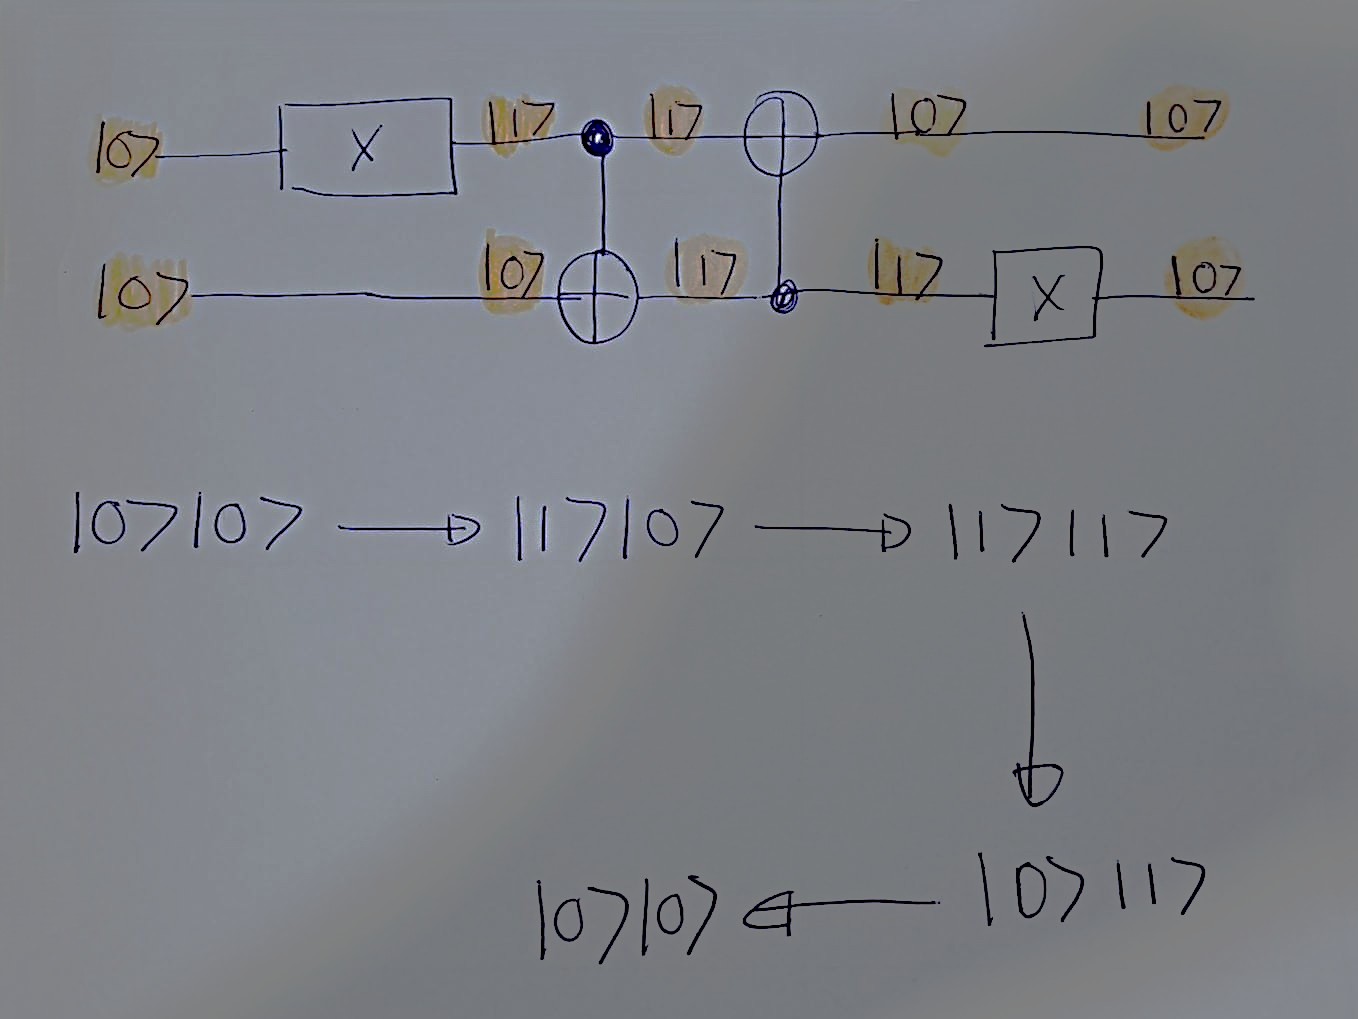 |0> X |1> |1> |0> |0>
|0> |0> |1> |1> X |0>
|0>|0> → |1>|0> → |1>|1>
↓
|0>|0> ← |0>|1>